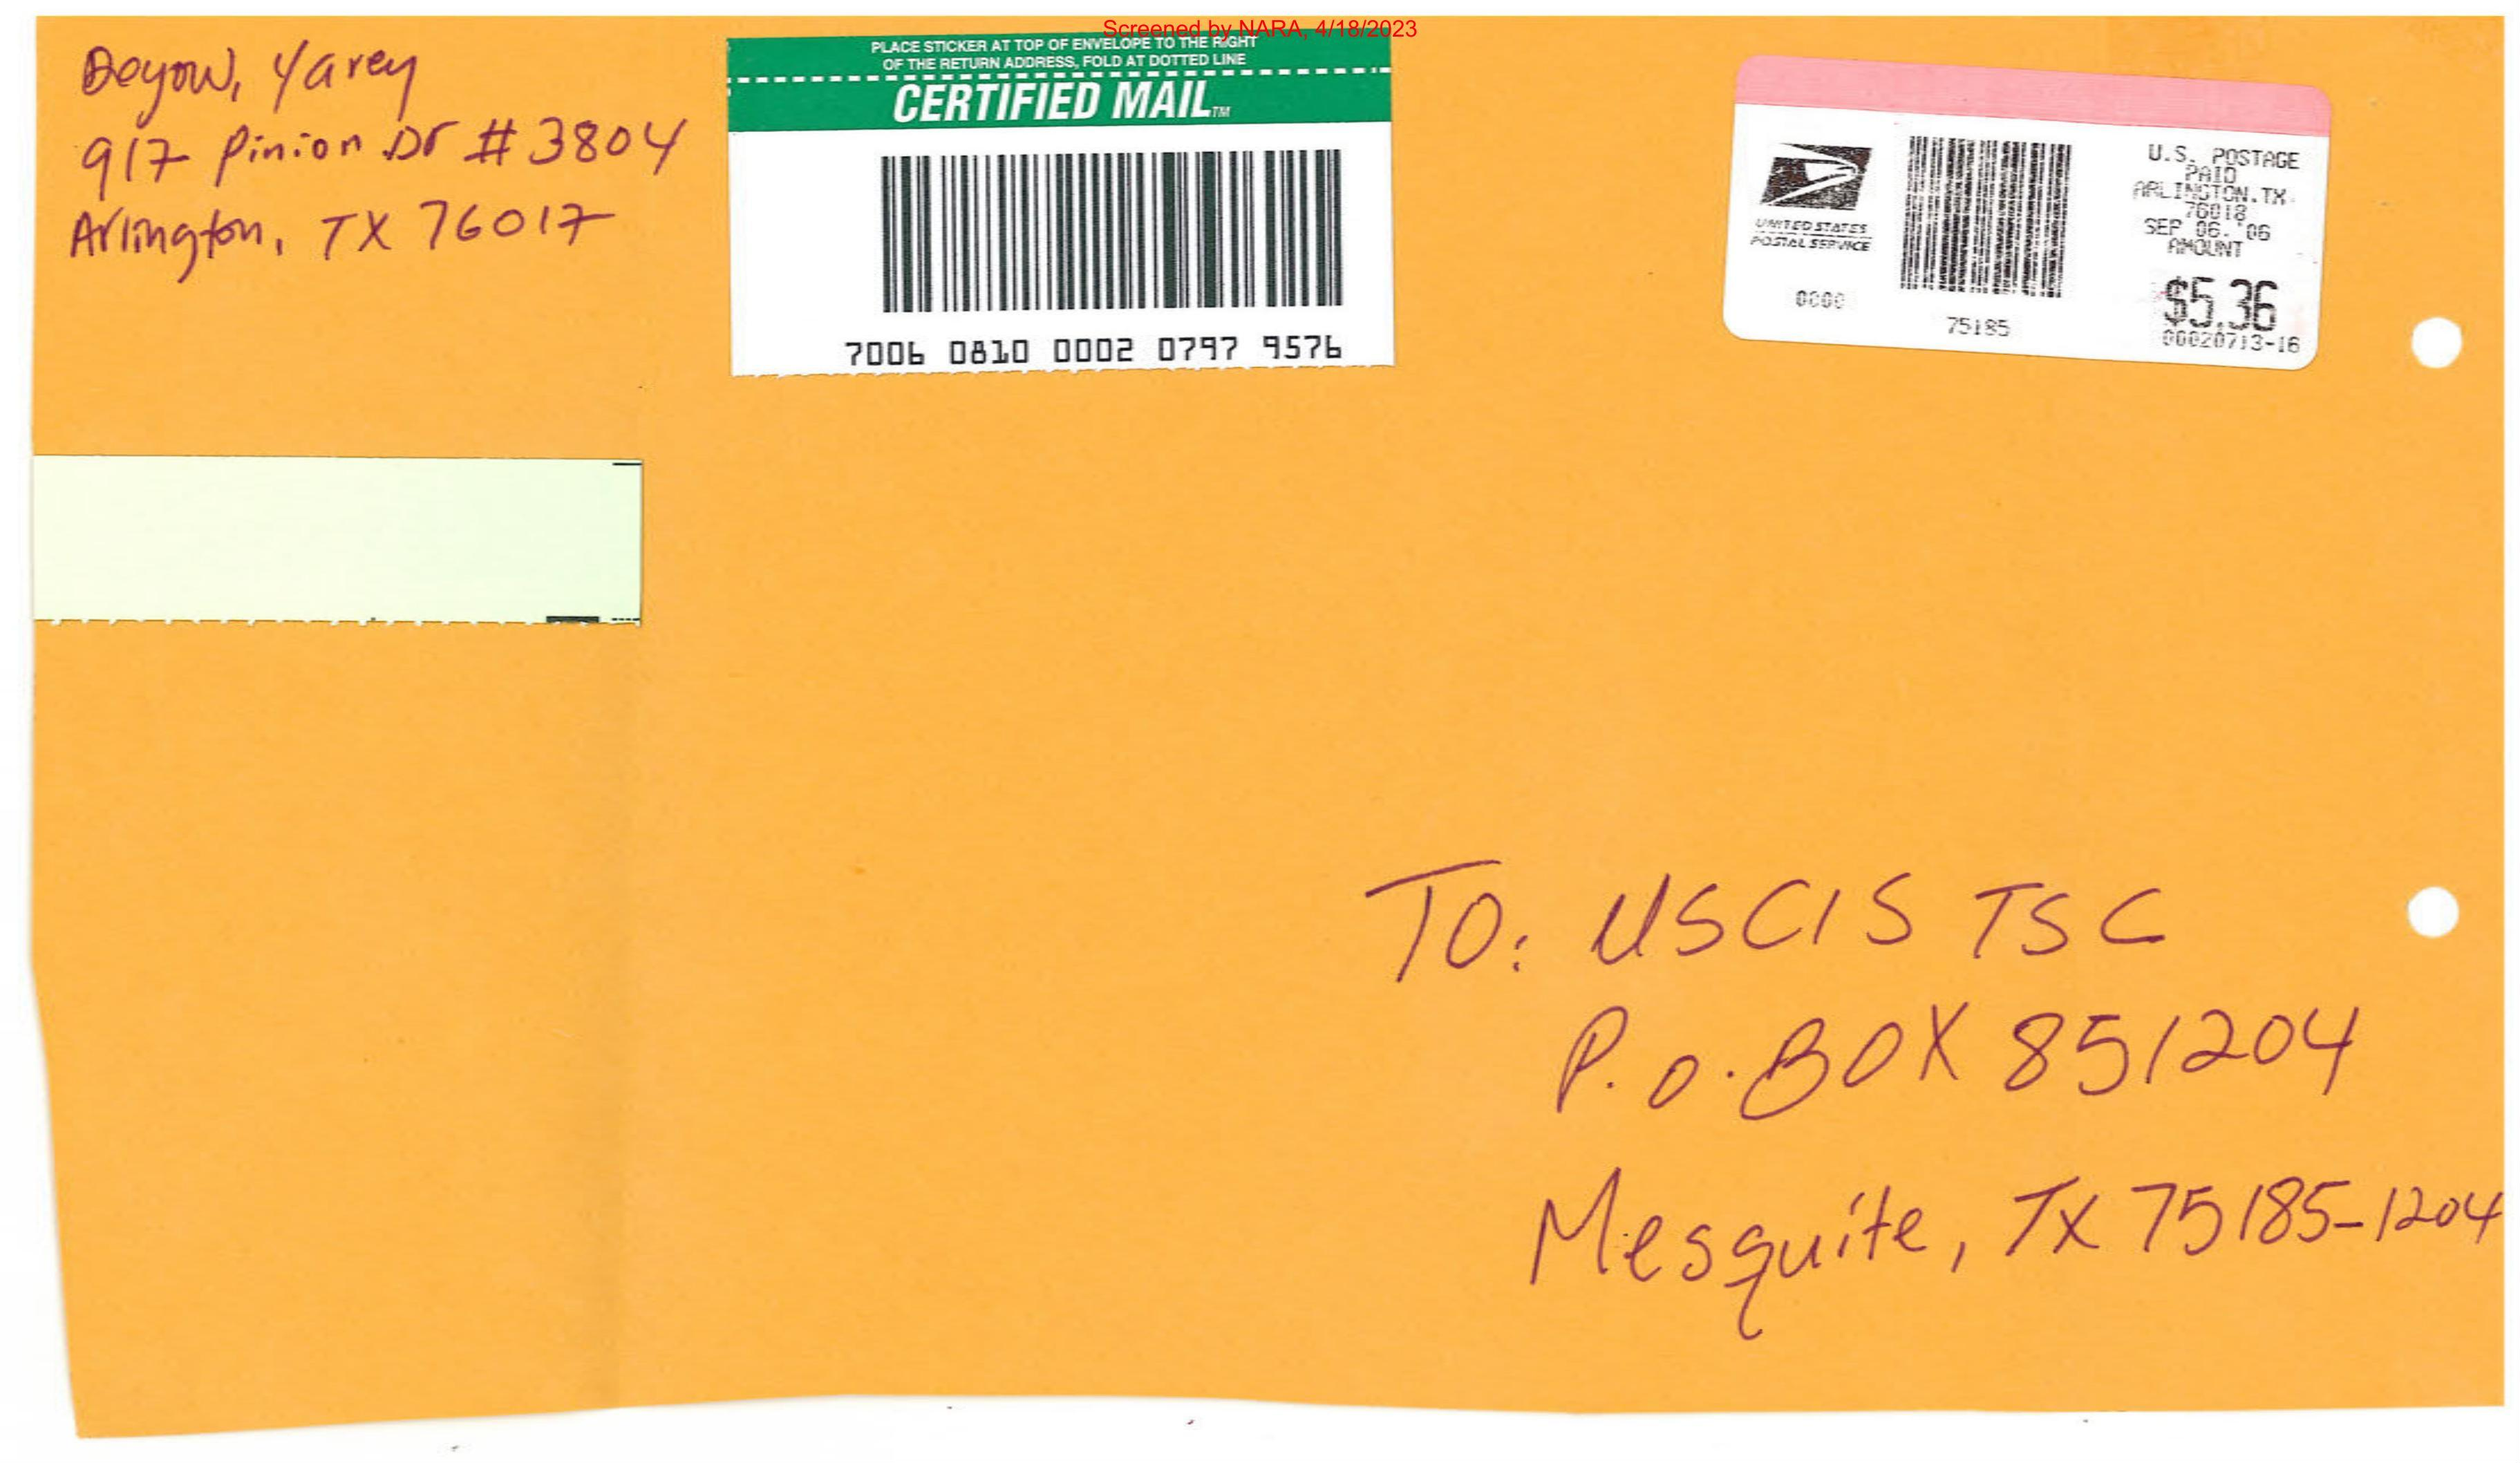 Screened by NARA, 4/18/2023
Deyow, Yarey
917 Pinion Dr # 3804
Arlington, TX 76017
PLACE STICKER AT TOP OF ENVELOPE TO THE RIGHT
OF THE RETURN ADDRESS, FOLD AT DOTTED LINE
CERTIFIED MAIL™
7006 0810 0002 0797 9576
UNITED STATES
POSTAL SERVICE
0000
75185
U.S. POSTAGE
PAID
ARLINGTON.TX
76018
SEP 06. '06
AMOUNT
$5.36
00020713-16
To: USCIS TSC
P.O. BOX 851204
Mesquite, TX 75185-1204